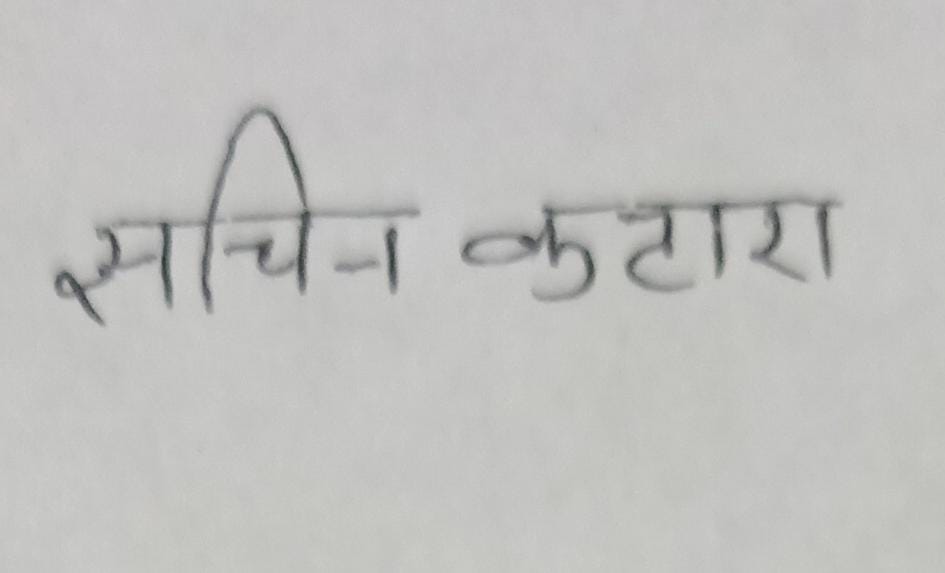 सचिन कटारा